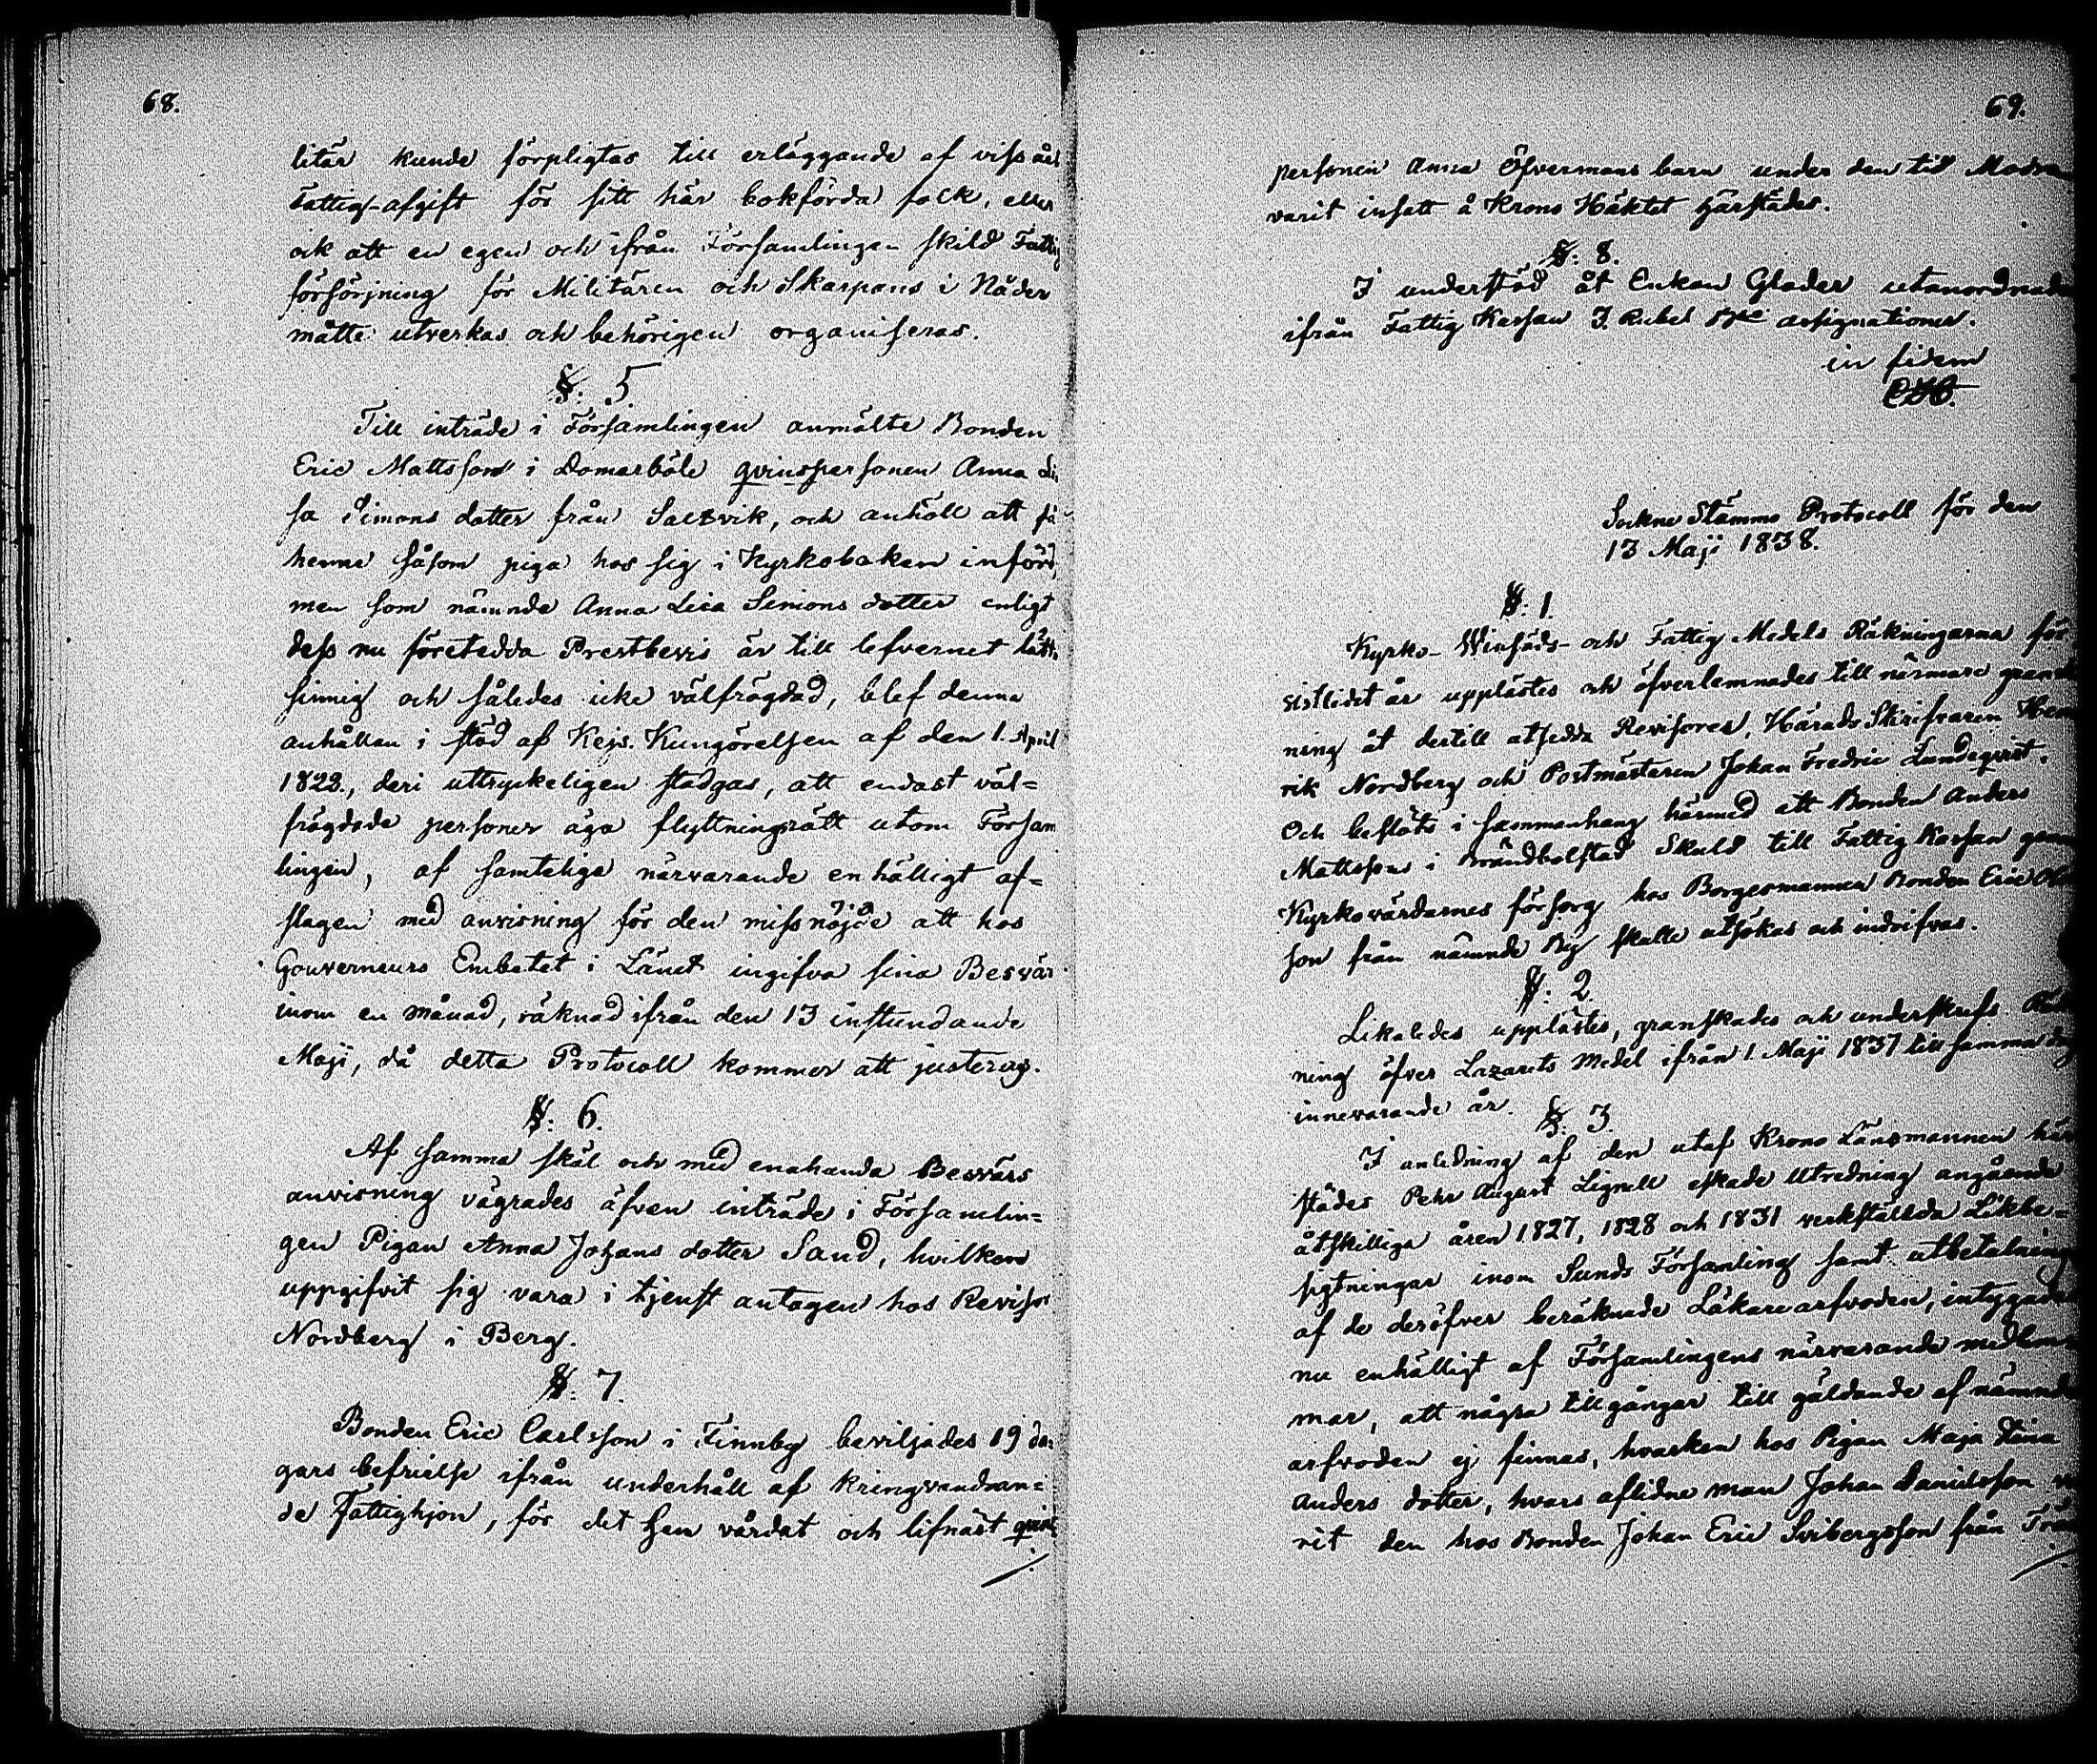 68.
litär kunde förpligtas till erläggande af viss års
Fattig-afgift för sitt här bokförda folk, eller
ock att en egen och ifrån Församlingen skild Fattig
försörjning för Militären och Skarpans i Nåder
måtte utverkas och behörigen organiseras.
§: 5
Till inträde i Församlingen anmälte Bonden
Eric Mattsson i Domarböle qvinspersonen Anna Li
sa Simons dotter från Saltvik, och anhöll att få
henne såsom piga hos sig i Kyrkoboken införd,
men som nämnde Anna Lisa Simons dotter enligt
dess nu företedda Prestbevis är till lefvernet lätt-
sinnig och således icke välfrägdad, blef denna
anhållan i stöd af Kejs. Kungörelsen af den 1. April
1823., deri uttryckeligen stadgas, att endast väl=
frägdade personer äga flyttningsrätt utom Försam
lingen, af samtelige närvarande enhälligt af=
slagen med anvisning för den missnöjde att hos
Gouverneurs Embetet i Länet ingifva sina Besvär
inom en månad, räknad ifrån den 13 instundande
Maji, då detta Protocoll kommer att justeras.
§: 6.
Af samma skäl och med enahanda Besvärs
anvisning vägrades äfven inträde i Församlin=
gen Pigan Anna Johans dotter Sand, hvilken
uppgifvit sig vara i tjenst antagen hos Revisor
Nordberg i Berg.
§: 7.
Bonden Eric Carlsson i Finnby beviljades 19 da-
gars befrielse ifrån underhåll af kringvandran=
de Fattighjon, för det han vårdat och lifnärt qvins
69.
personen Anna Öfvermans barn under den tid Modren
varit insatt å Krono Häktet härstädes.
§: 8.
I understöd åt Enkan Glader utanordnades
ifrån Fattig Kassan 7. Rubel Bco assignationer.
in fidem
Sockne Stämmo Protocoll för den
13 Maji 1838.
§: 1.
Kyrko- Winsäds- och Fattig Medels Räkningarna för
sistlidet år upplästes och öfverlemnades till närmare gransk
ning åt dertill utsedda Revisorer, Härads Skrifvaren Hen
rik Nordberg och Postmästaren Johan Fredric Lundeqvist.
Och beslöts i sammanhang härmed att Bonden Anders
Mattssons i Brändbolstad Skuld till Fattig Kassan genom
Kyrkovärdarnes försorg hos Borgesmannen Bonden Eric Ols
son från nämnde By skulle utsökas och indrifvas.
§: 2.
Likaledes upplästes, granskades och underskrefs Räk
ning öfver Lazarets Medel ifrån 1 Maji 1837 till samma dag
innevarande år.
§: 3.
I anledning af den utaf Krono Länsmannen här
städes Pehr August Lignell eskade Utredning angående
åtskilliga åren 1827, 1828 och 1831 verkställda Likbe=
sigtningar inom Sunds Församling samt utbetalning
af de deröfver beräknade Läkarearfvoden, intygades
nu enhälligt af Församlingens närvarande medlem
mar, att några tillgångar till gäldande af nämnde
arfvoden ej finnas, hvarken hos Pigan Maja Stina
Anders dotter, hvars aflidne man Johan Danielsson va
rit den hos Bonden Johan Eric Sribergsson från